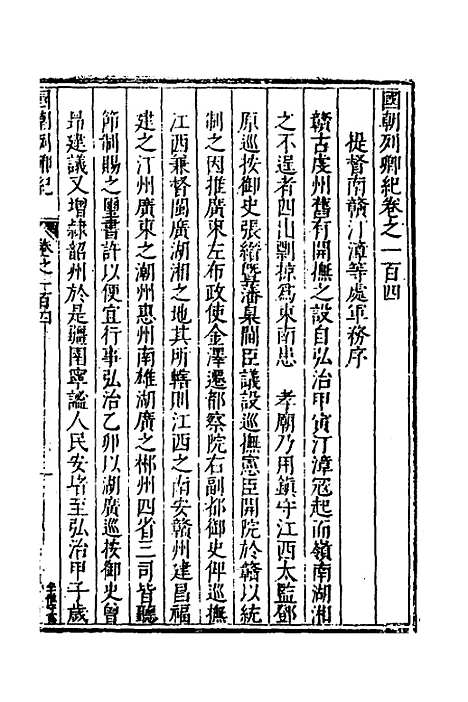 國朝列卿紀卷之一百四
提督南贛汀漳等處軍務序
贛古虔州舊有開撫之設自弘治甲寅汀漳寇起而嶺南湖湘
之不逞者四出剽掠爲東南患 孝廟乃用鎮守江西太監鄧
原巡按御史張縉曁藩臬閫臣議設巡撫憲臣開院於贛以統
制之因推廣東左布政使金澤遷都察院右副都御史俾巡撫
江西兼督閩廣湖湘之地其所轄則江西之南安贛州建昌福
建之汀州廣東之潮州惠州南雄湖廣之郴州四省三司皆聽
節制賜之璽書許以便宜行事弘治乙卯以湖廣巡按御史曾
昂建議又增隸韶州於是疆圉寧謐人民安堵至弘治甲子歲
國朝列卿紀
卷之一百四